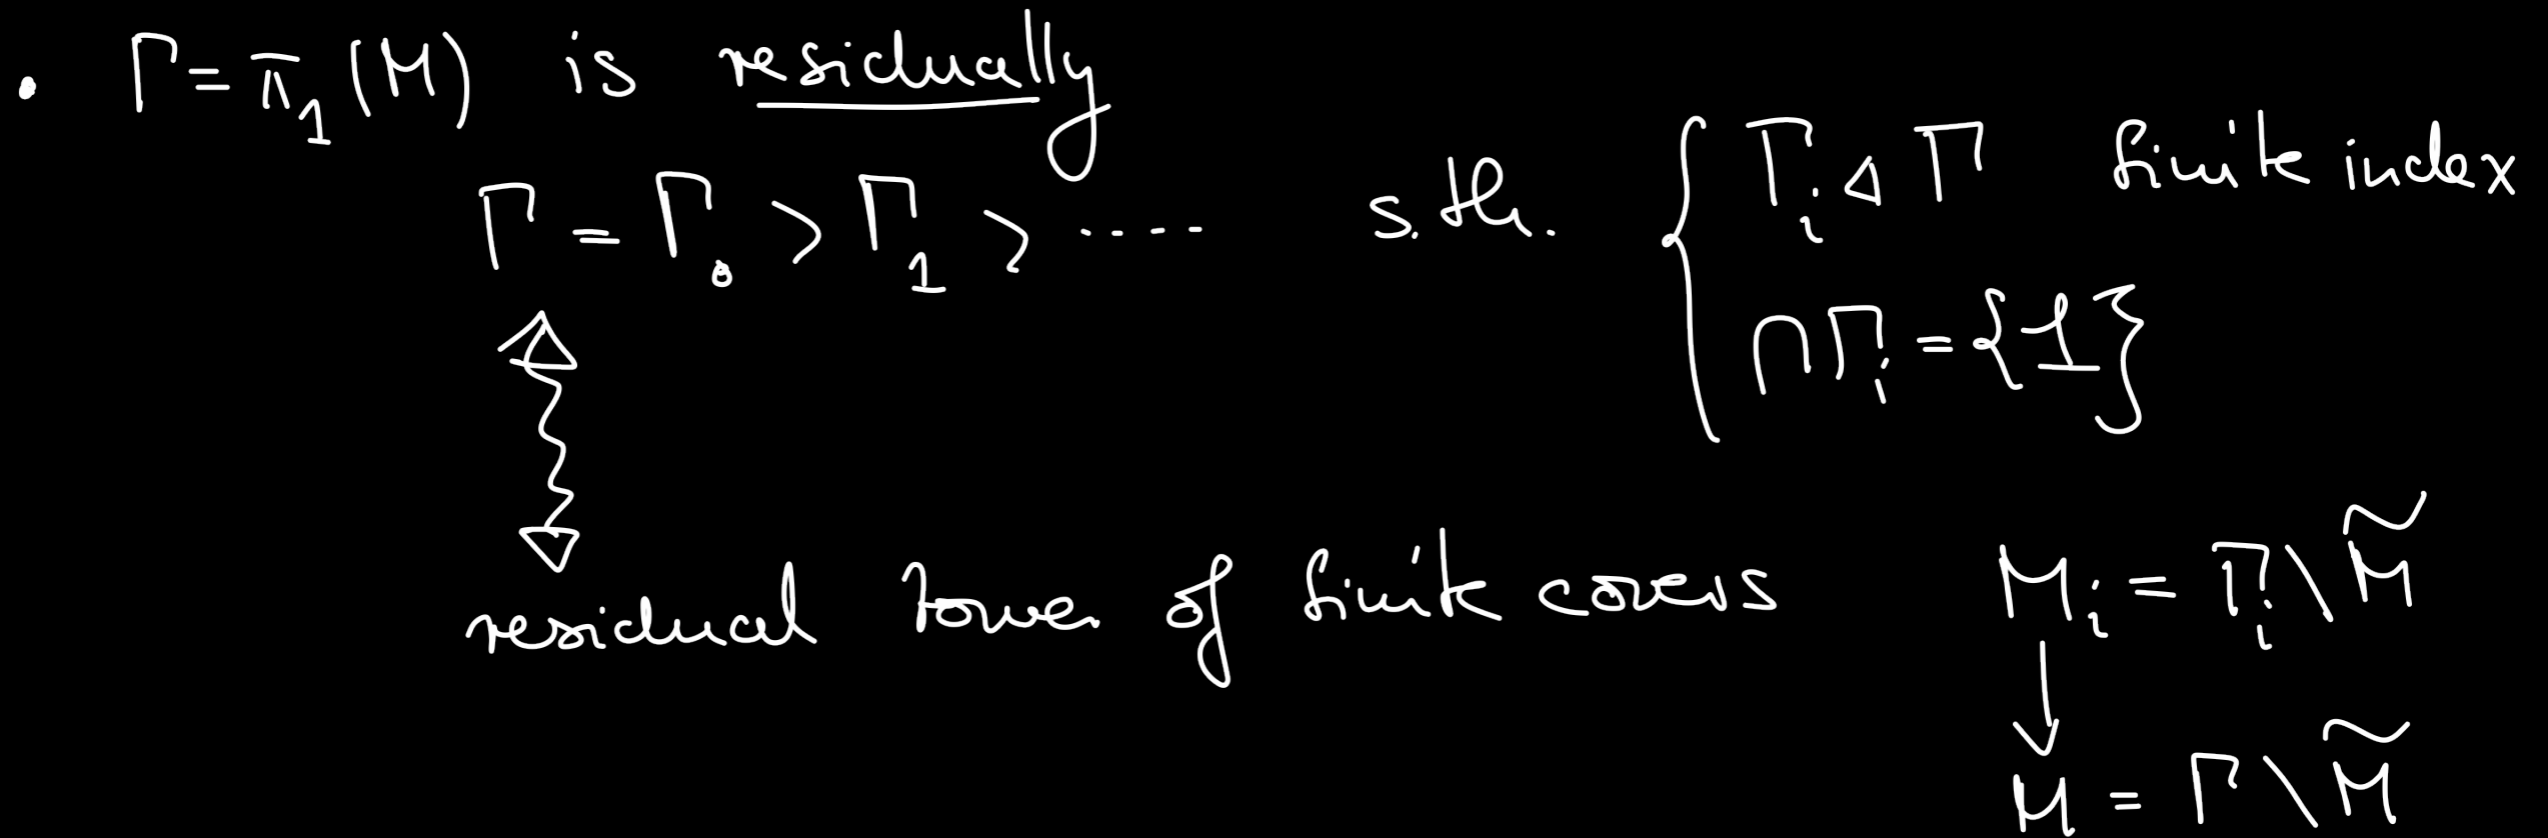 • Γ = π₁(M) is residually
Γ = Γ₀ > Γ₁ > ···· s.th. { Γᵢ ◁ Γ finite index
∩Γᵢ = {1}
residual tower of finite covers Mᵢ = Γᵢ\M̃
↓
M = Γ\M̃